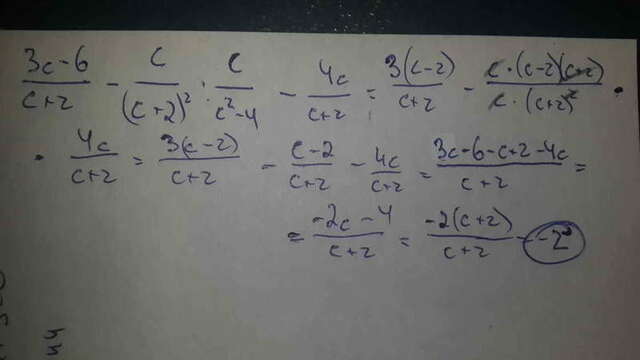 (3c-6)/(c+2) - c/(c+2)² : c/(c²-4) - 4c/(c+2) = 3(c-2)/(c+2) - c·(c-2)(c+2)/(c·(c+2)²) ·
· 4c/(c+2) = 3(c-2)/(c+2) - (c-2)/(c+2) - 4c/(c+2) = (3c-6-c+2-4c)/(c+2) =
= (-2c-4)/(c+2) = -2(c+2)/(c+2) = -2